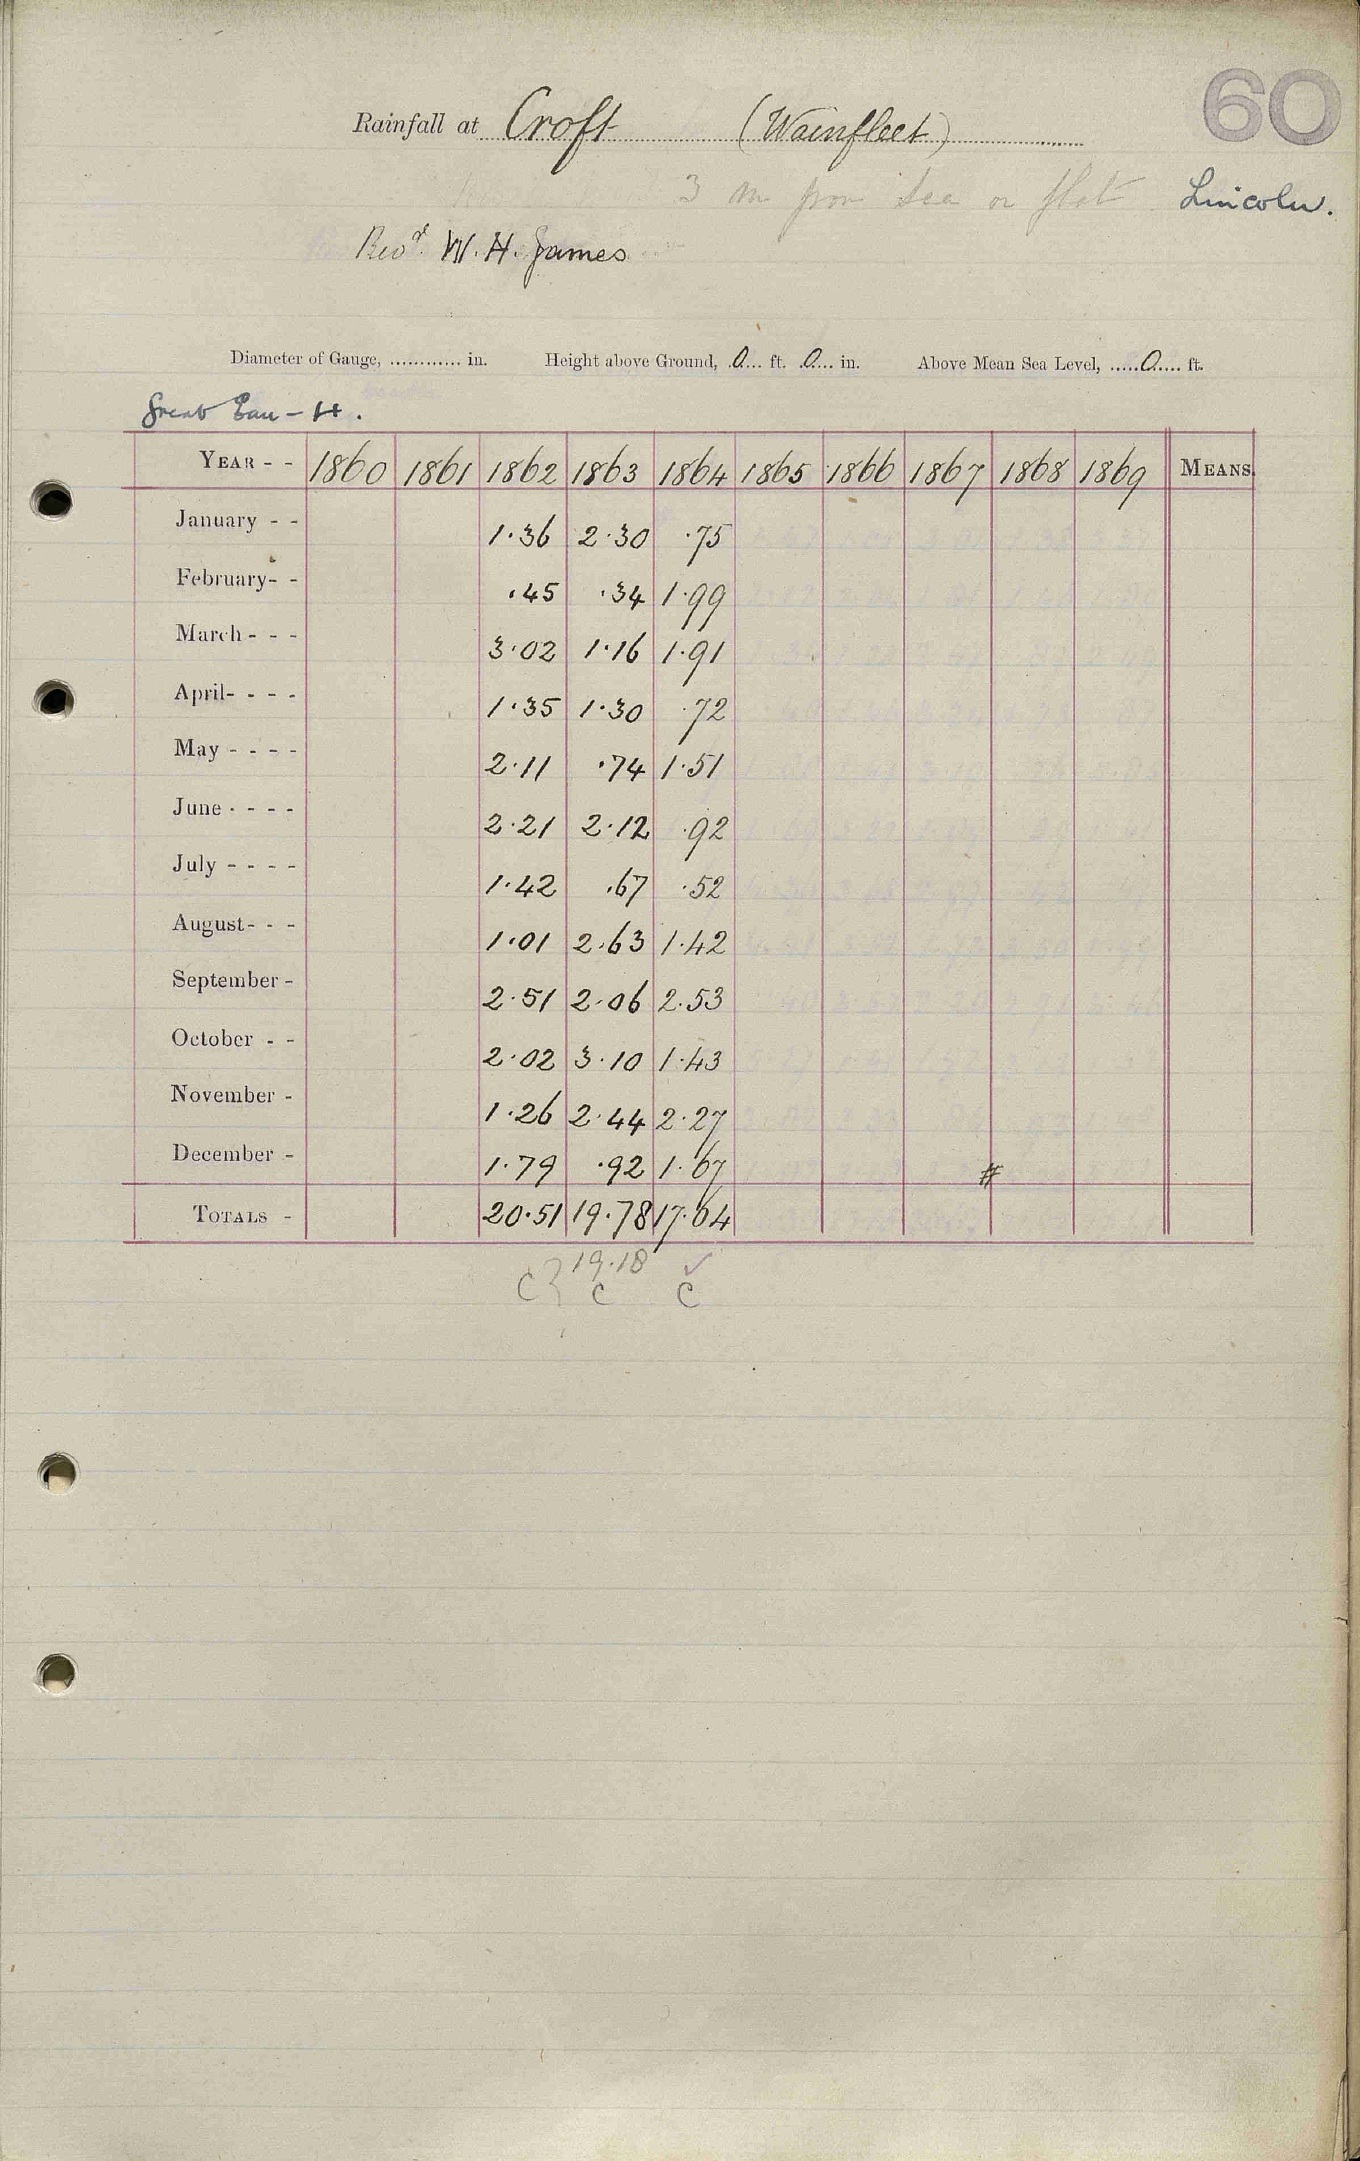 60
Rainfall at Croft (Wainfleet)
3 m from Sea on flat Lincoln.
Revd. W. H. James
Diameter of Gauge, ............ in. Height above Ground, 0 ft. 0 in. Above Mean Sea Level, 0 ft.
Great Eau - H.
YEAR - - 1860 1861 1862 1863 1864 1865 1866 1867 1868 1869 MEANS.
January - - 1.36 2.30 .75
February - - .45 .34 1.99
March - - - 3.02 1.16 1.91
April - - - - 1.35 1.30 .72
May - - - - 2.11 .74 1.51
June - - - - 2.21 2.12 .92
July - - - - 1.42 .67 .52
August - - - 1.01 2.63 1.42
September - 2.51 2.06 2.53
October - - 2.02 3.10 1.43
November - 1.26 2.44 2.27
December - 1.79 .92 1.67 #
TOTALS - 20.51 19.78 17.64
19.18 ✓
C C C